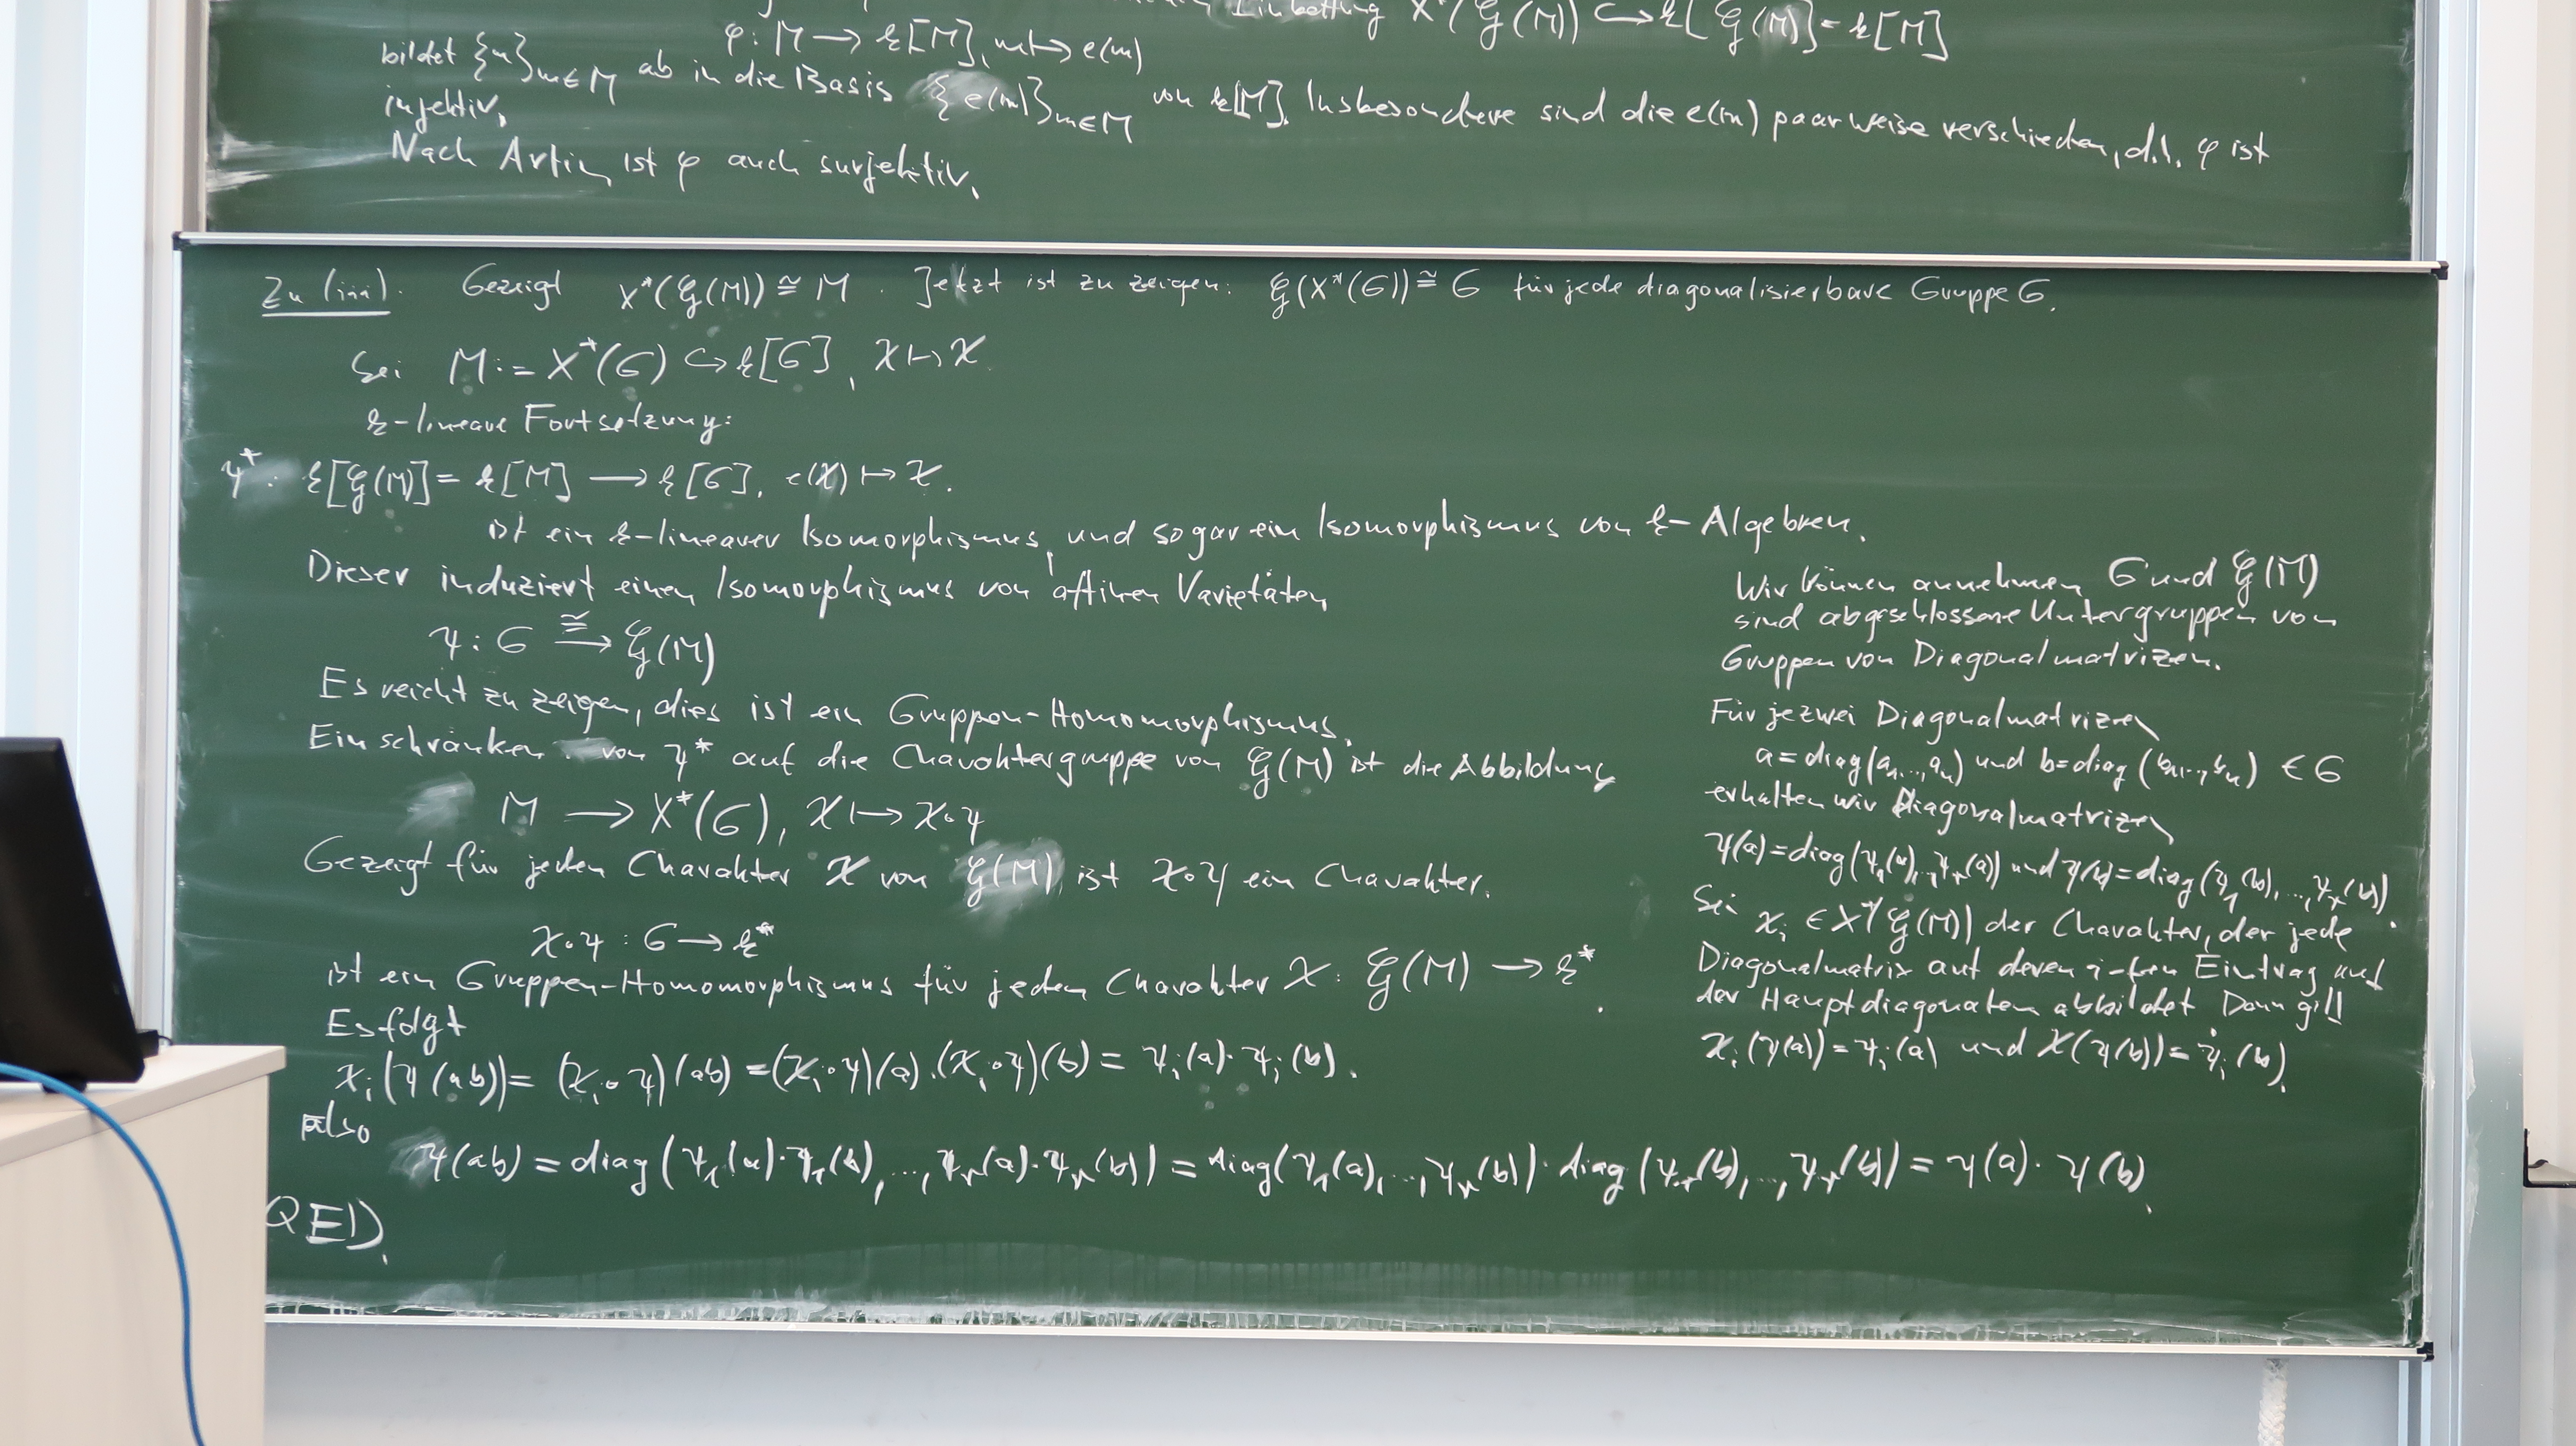 Einbettung X*(𝒢(M)) ↪ k[𝒢(M)] = k[M]
φ: M → k[M], m ↦ e(m)
bildet {m}_{m∈M} ab in die Basis {e(m)}_{m∈M} von k[M]. Insbesondere sind die e(m) paarweise verschieden, d.h. φ ist
injektiv.
Nach Artin ist φ auch surjektiv.
Zu (iii). Gezeigt X*(𝒢(M)) ≅ M. Jetzt ist zu zeigen: 𝒢(X*(G)) ≅ G für jede diagonalisierbare Gruppe G.
Sei M := X*(G) ↪ k[G], χ ↦ χ.
k-lineare Fortsetzung:
ψ*: k[𝒢(M)] = k[M] → k[G], e(χ) ↦ χ.
ist ein k-linearer Isomorphismus, und sogar ein Isomorphismus von k-Algebren.
Dieser induziert einen Isomorphismus von affinen Varietäten
ψ: G ≅→ 𝒢(M)
Es reicht zu zeigen, dies ist ein Gruppen-Homomorphismus.
Einschränken von ψ* auf die Charaktergruppe von 𝒢(M) ist die Abbildung
M → X*(G), χ ↦ χ∘ψ
Gezeigt für jeden Charakter χ von 𝒢(M) ist χ∘ψ ein Charakter.
χ∘ψ: G → k*
ist ein Gruppen-Homomorphismus für jeden Charakter χ: 𝒢(M) → k*.
Es folgt
χᵢ(ψ(ab)) = (χᵢ∘ψ)(ab) = (χᵢ∘ψ)(a)·(χᵢ∘ψ)(b) = ψᵢ(a)·ψᵢ(b).
also
ψ(ab) = diag(ψ₁(a)·ψ₁(b),…,ψᵣ(a)·ψᵣ(b)) = diag(ψ₁(a),…,ψᵣ(b))·diag(ψ₁(b),…,ψᵣ(b)) = ψ(a)·ψ(b).
QED.
Wir können annehmen G und 𝒢(M)
sind abgeschlossene Untergruppen von
Gruppen von Diagonalmatrizen.
Für je zwei Diagonalmatrizen
a = diag(a₁,…,aₙ) und b = diag(b₁,…,bₙ) ∈ G
erhalten wir Diagonalmatrizen
ψ(a) = diag(ψ₁(a),…,ψᵣ(a)) und ψ(b) = diag(ψ₁(b),…,ψᵣ(b)).
Sei χᵢ ∈ X*(𝒢(M)) der Charakter, der jede
Diagonalmatrix auf deren i-ten Eintrag auf
der Hauptdiagonalen abbildet Dann gilt
χᵢ(ψ(a)) = ψᵢ(a) und χ(ψ(b)) = ψᵢ(b).